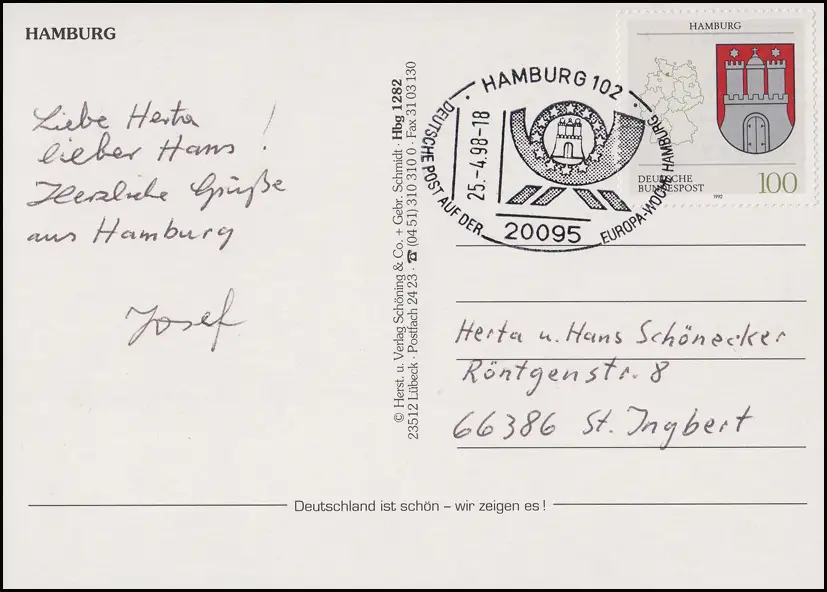 HAMBURG
Liebe Herta
lieber Hans !
Herzliche Grüße
aus Hamburg
Josef
© Herst. u. Verlag Schöning & Co. + Gebr. Schmidt · Hbg 1282
23512 Lübeck · Postfach 24 23 · ☎ (04 51) 310 310 0 · Fax 31 03 130
HAMBURG 102
DEUTSCHE POST AUF DER
EUROPA-WOCHE HAMBURG
25.-4.98-18
20095
HAMBURG
DEUTSCHE
BUNDESPOST
100
1992
Herta u. Hans Schönecker
Röntgenstr. 8
66386 St. Ingbert
Deutschland ist schön – wir zeigen es !